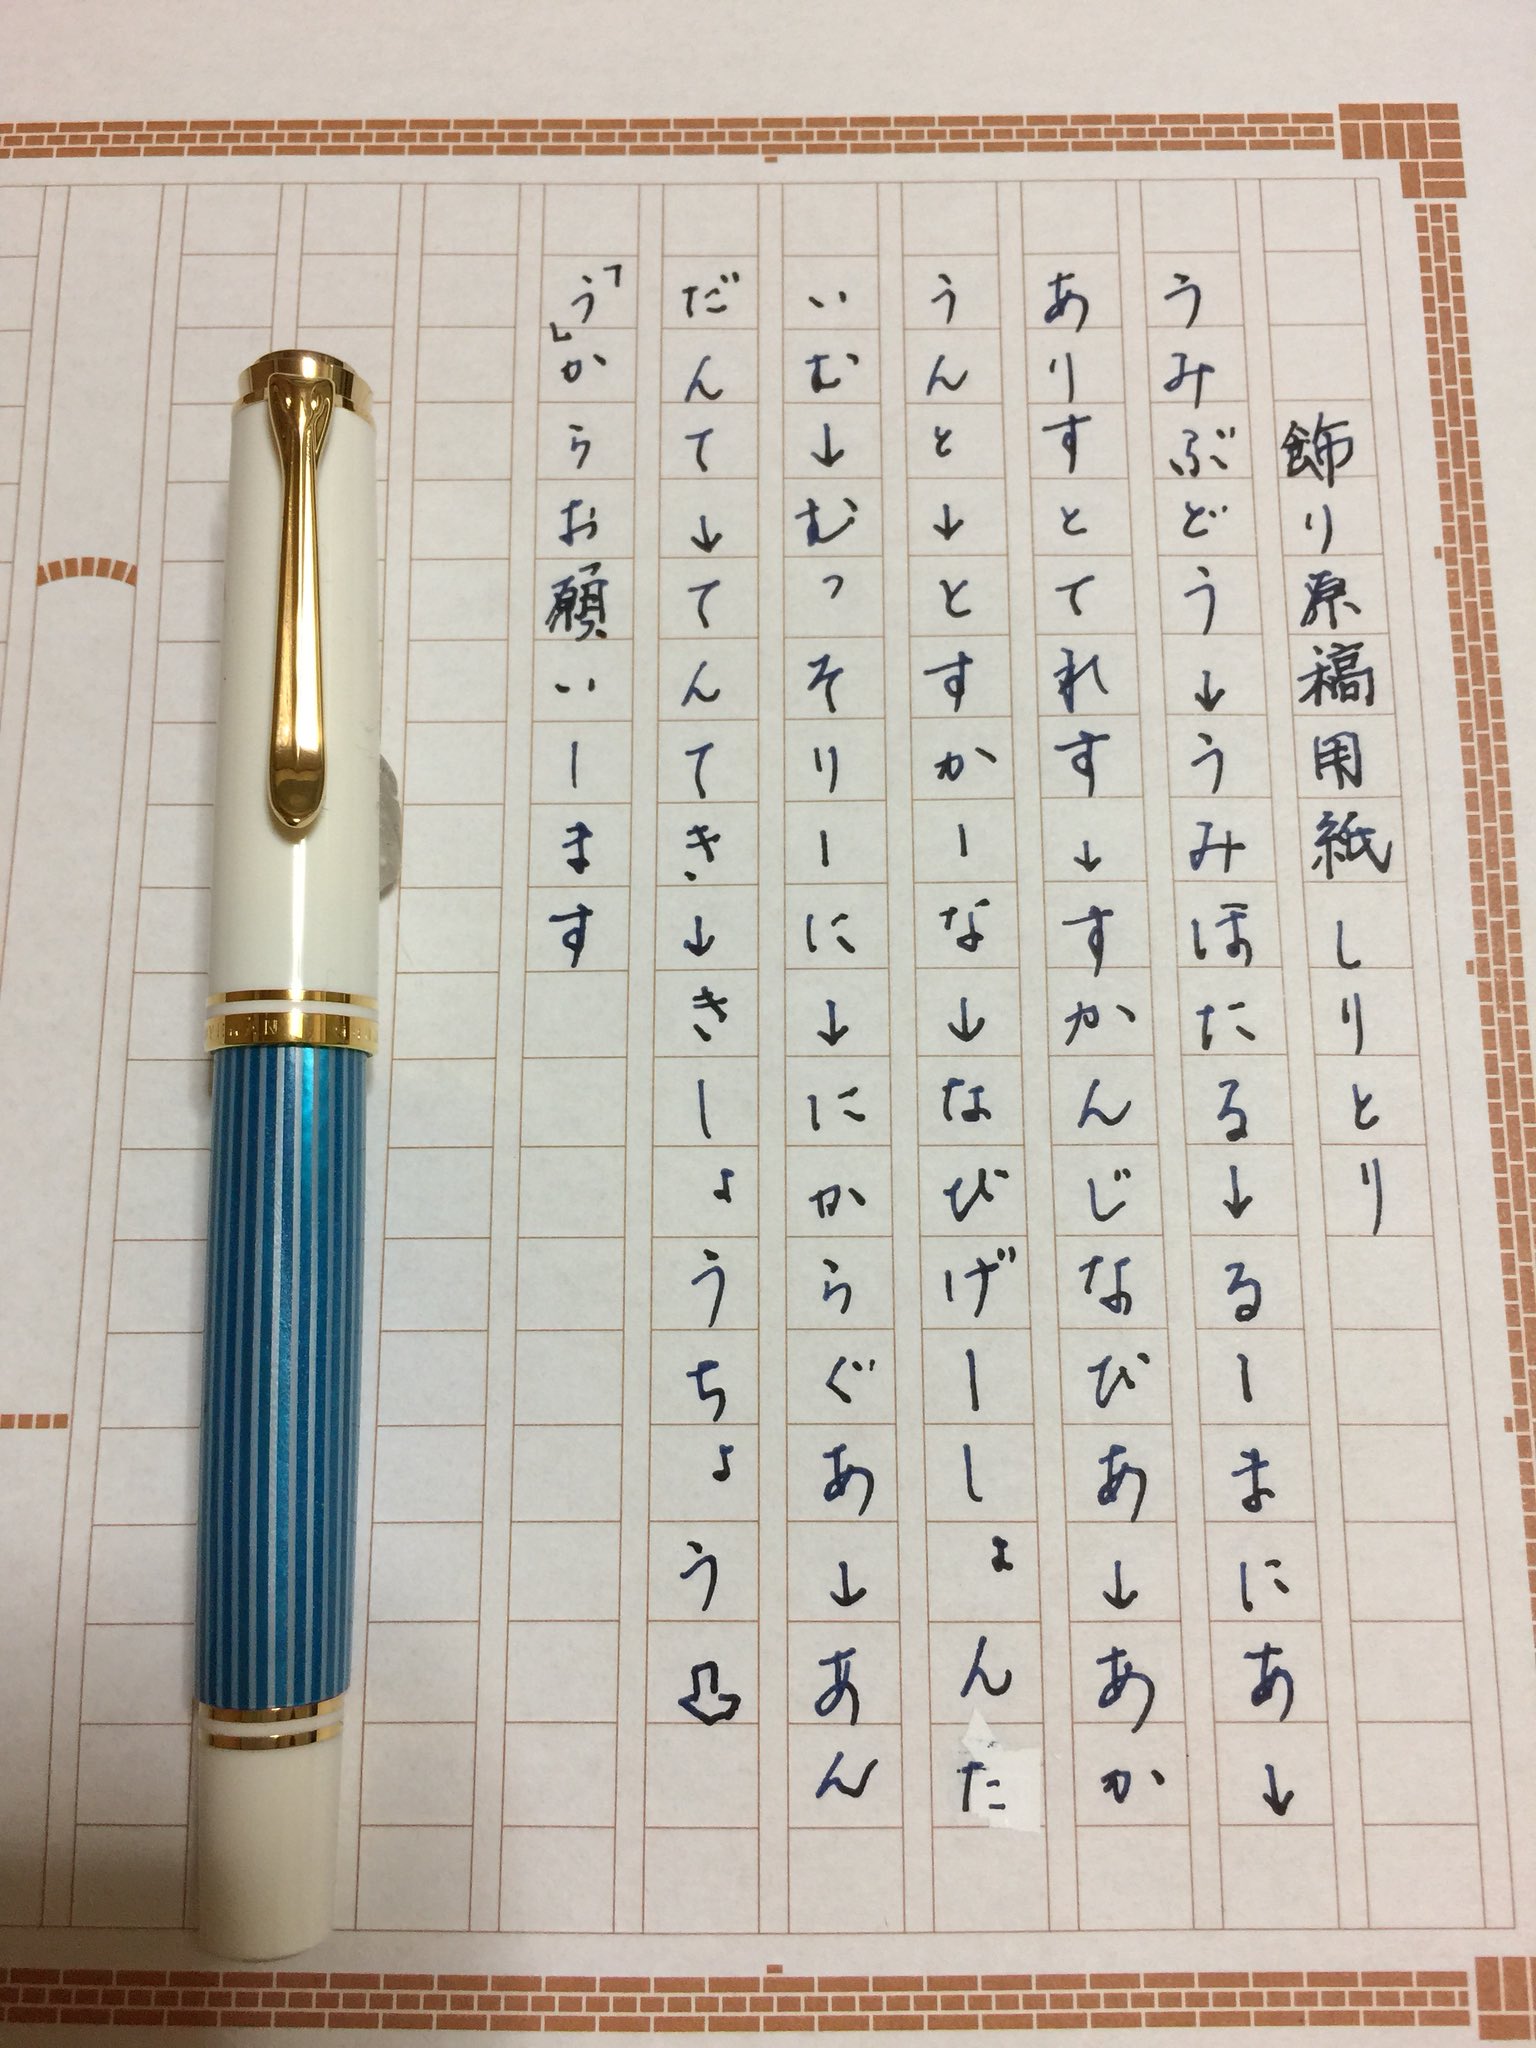 飾り原稿用紙しりとり
うみぶどう↓うみほたる↓るーまにあ↓
ありすとてれす↓すかんじなびあ↓あか
うんと↓とすかーな↓なびげーしょんた
いむ↓むっそりーに↓にからぐあ↓あん
だんて↓てんてき↓きしょうちょう⇩
「う」からお願いします